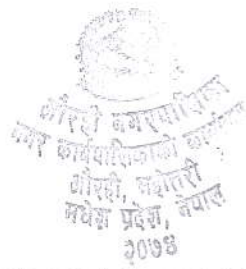 औरही नगरपालिका
नगर कार्यपालिकाको कार्यालय
औरही, महोत्तरी
मधेश प्रदेश, नेपाल
२०७४